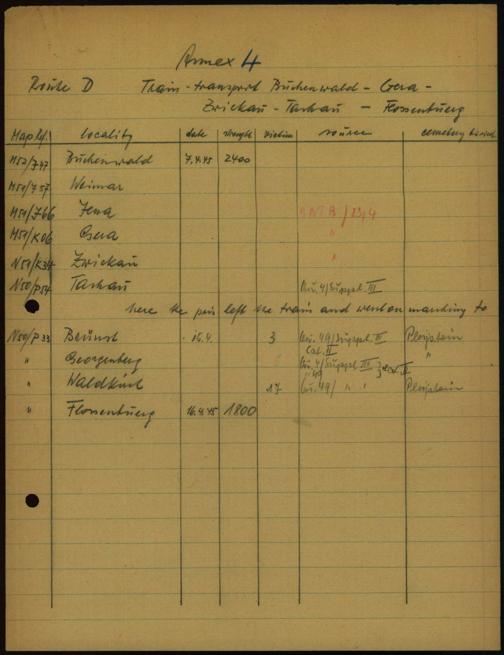 Annex 4
Route D Train-transport Buchenwald - Gera -
Zwickau - Tachau - Flossenbuerg
Map Ref. locality date strength victims source cemetery buried
M52/J47 Buchenwald 7.4.45 2400
M51/J57 Weimar
M51/J66 Jena /13,4
M51/K06 Gera "
N51/K34 Zwickau
N50/P54 Tachau Bu. 4/Suppl. III
here the left the train and went on marching to
N50/P33 Brünst 15.4. 3 Bu. 49/Suppl. II Plojstein
Cat. II
" Georgenberg Bu. 4/Suppl. III "
" Waldkirch 17 Bu. 49/ " " Plojstein
" Flossenbuerg 16.4.45 1800